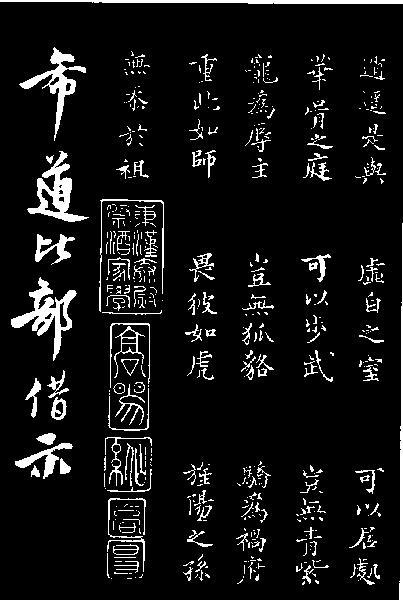 逍遙是與 虛白之室 可以居處
華胥之庭 可以步武 豈無青紫
寵為辱主 豈無狐貉 驕為禍府
重此如師 畏彼如虎 旌陽之孫
無忝於祖
東漢
祭酒家學
高陽
希道比部借示